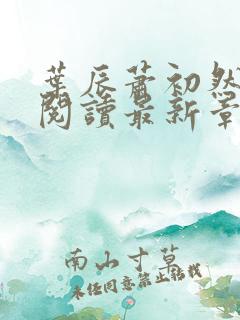 葉辰蕭初然
閱讀最新章
南山寸草
未經同意禁止轉載